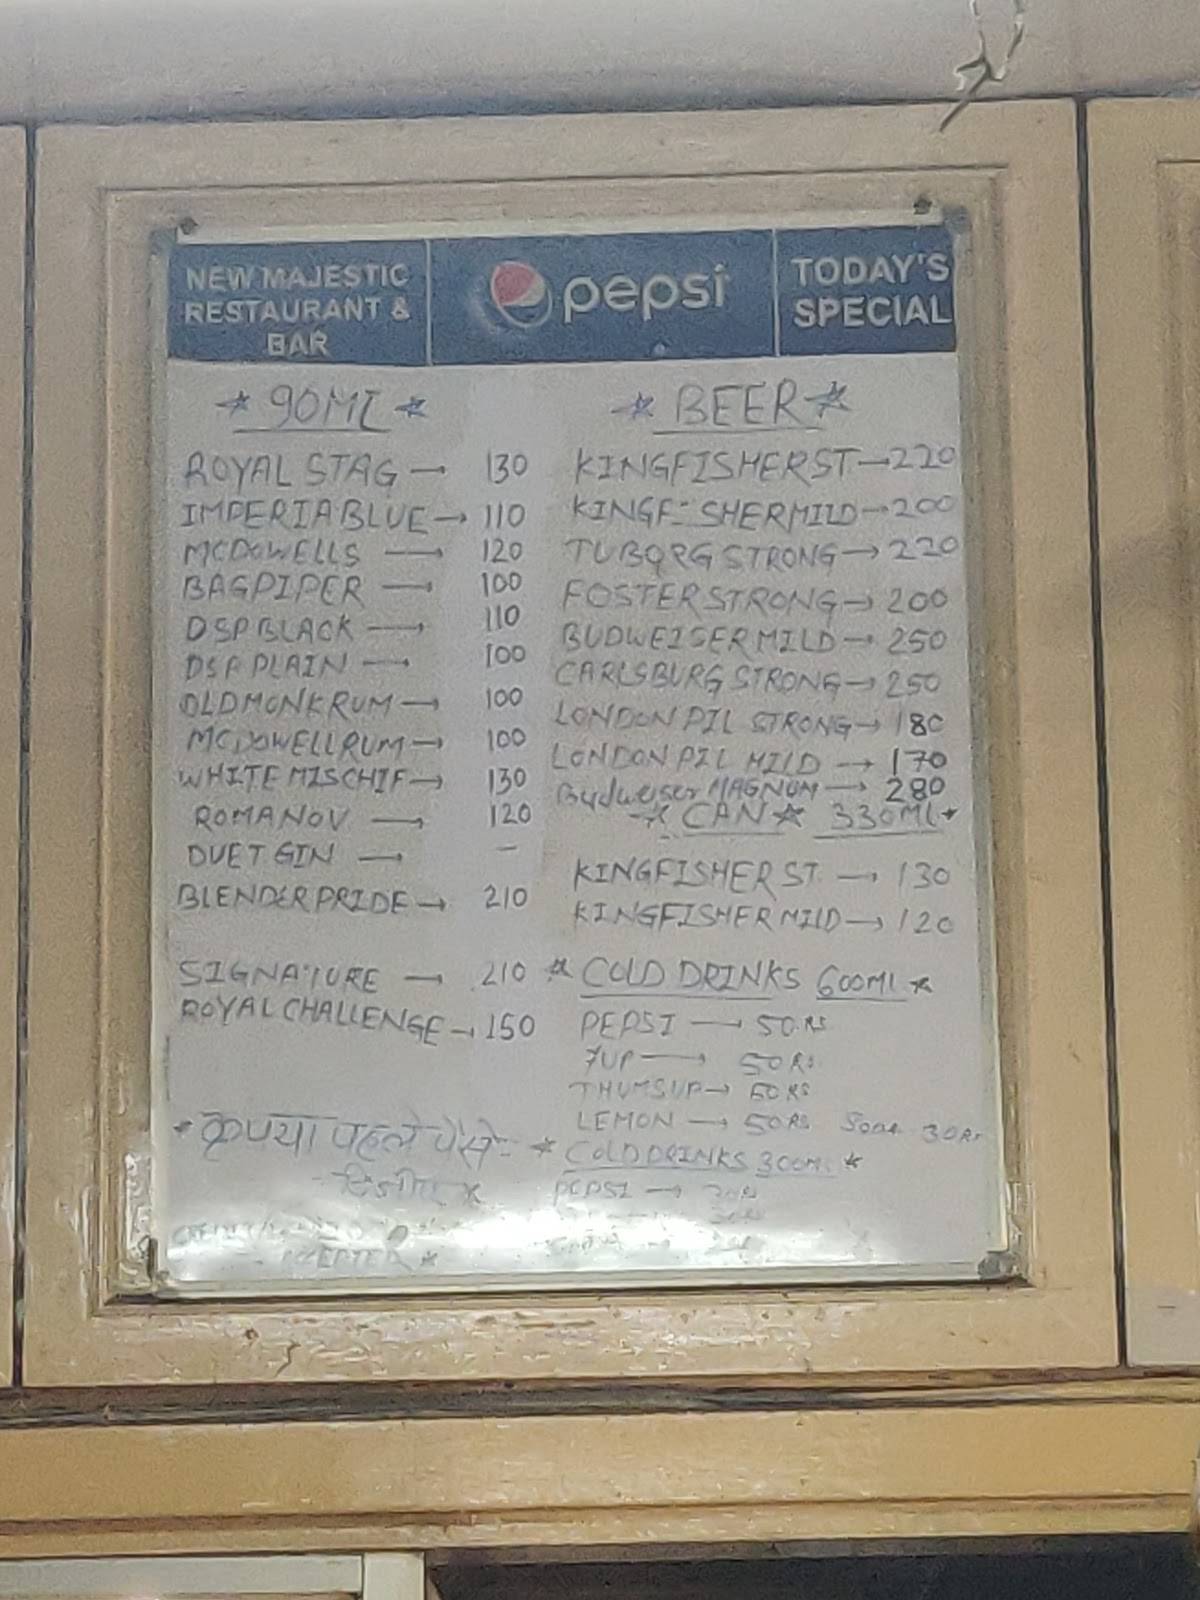 NEW MAJESTIC
RESTAURANT &
BAR
pepsi
TODAY'S
SPECIAL
* 90ML *
ROYAL STAG → 130
IMPERIABLUE → 110
MCDOWELLS → 120
BAGPIPER → 100
DSP BLACK → 110
DSP PLAIN → 100
OLD MONK RUM → 100
MCDOWELL RUM → 100
WHITE MISCHIF → 130
ROMANOV → 120
DUET GIN → -
BLENDER PRIDE → 210
SIGNATURE → 210
ROYAL CHALLENGE → 150
* कृपया पहले पैसे
* BEER *
KINGFISHER ST → 220
KINGFISHER MILD → 200
TUBORG STRONG → 220
FOSTER STRONG → 200
BUDWEISER MILD → 250
CARLSBURG STRONG → 250
LONDON PIL STRONG → 180
LONDON PIL MILD → 170
Budweiser MAGNUM → 280
* CAN * 330ML *
KINGFISHER ST. → 130
KINGFISHER MILD → 120
* COLD DRINKS 600ML *
PEPSI → 50 RS
7UP → 50 RS
THUMSUP → 50 RS
LEMON → 50 RS Soda 30 RS
* COLD DRINKS 300ML *
PEPSI →